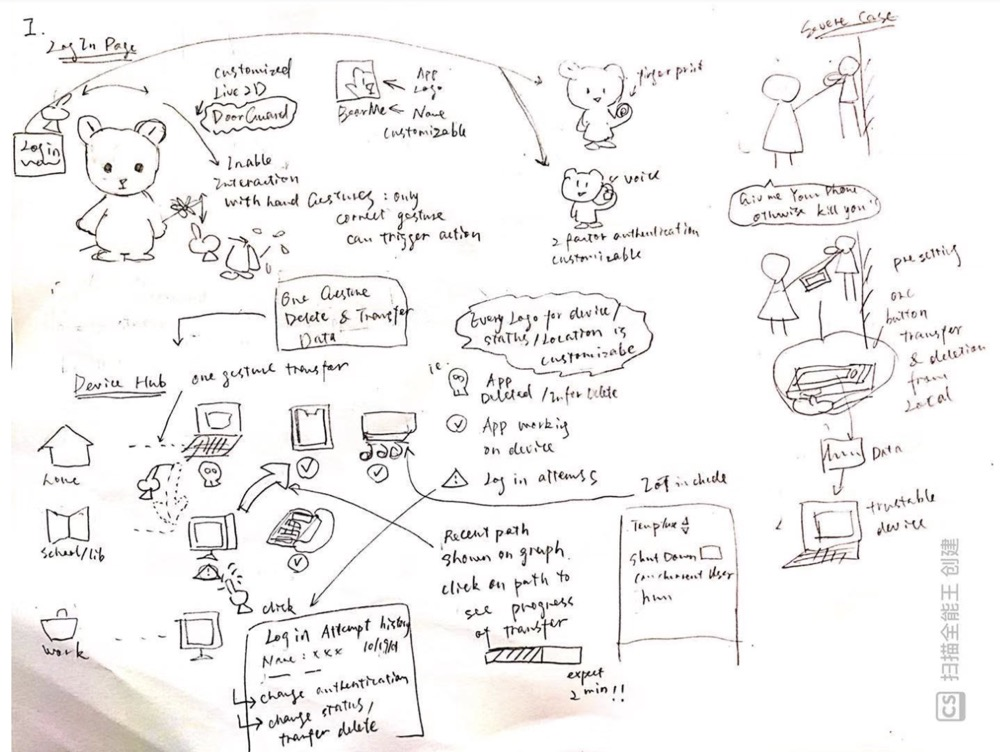 I.
Log In Page
Log in
now
Customized
Live 2D
DoorGuard
App
Logo
BearMe
Name
customizable
finger print
Inable
Interaction
with hand Gestures : only
correct gesture
can trigger action
voice
2 factor authentication
customizable
Severe Case
Give me Your Phone
othwise kill you"
pre setting
one
button
transfer
& deletion
from
Local
Data
trustable
device
One Guesture
Delete & Transfer
Data
Every Logo for device/
status/Location is
customizabe
Device Hub
one gesture transfer
ie:
App
Deleted /Infor Delete
App working
on device
Log in attemss
home
school/lib
work
click
Recent path
shown on graph.
click on path to
see progress
of transfer
expect
2 min!!
IoT include
Shut Down
Login Attempt history
Name : x x x
change authentication
change status/
tranfer delete
CS 扫描全能王 创建